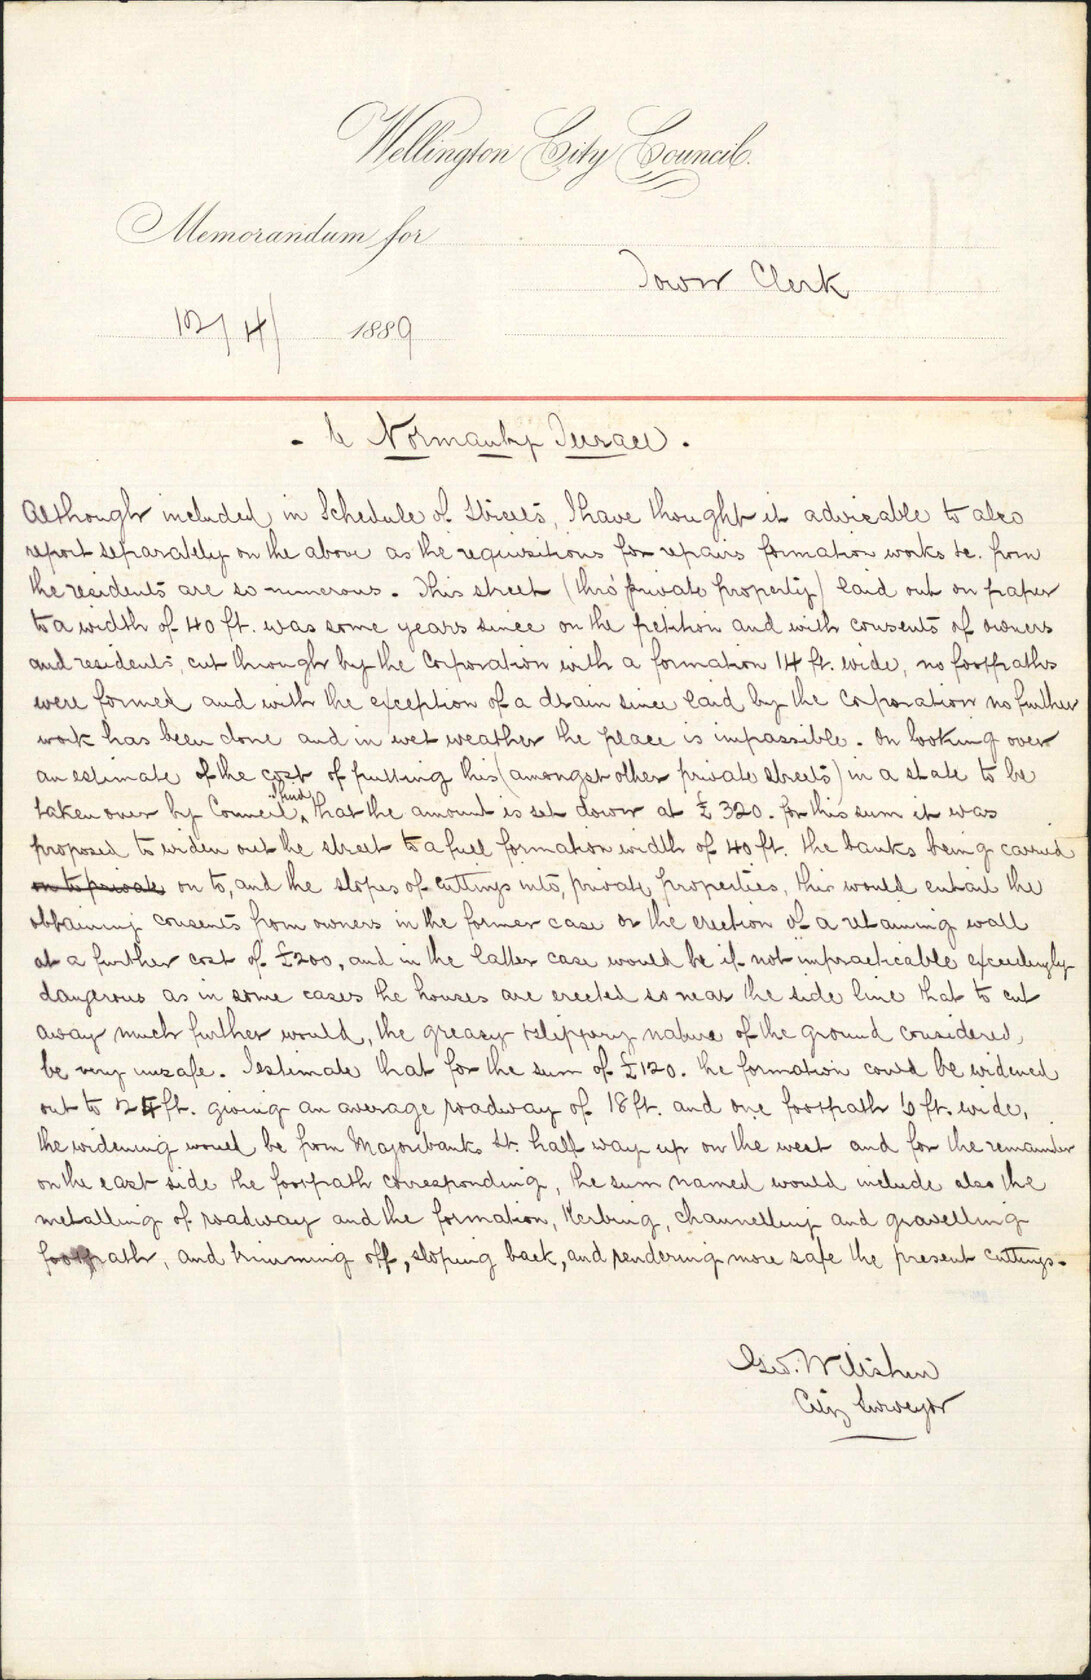 Wellington City Council.
Memorandum for
Town Clerk
12/4/ 1889
- re Normanby Terrace .
Although included in Schedule of Streets, I have thought it advisable to also
report separately on the above as the requisitions for repairs formation works &c. from
the residents are so numerous. This street (thro' private property) laid out on paper
to a width of 40 ft. was some years since on the petition and with consents of owners
and residents cut through by the Corporation with a formation 14 ft. wide, no footpaths
were formed and with the exception of a drain since laid by the Corporation no further
work has been done and in wet weather the place is impassible. On looking over
an estimate of the cost of putting this (amongst other private streets) in a state to be
taken over by Council, I find that the amount is set down at £320. for this sum it was
proposed to widen out the street to a full formation width of 40 ft. the banks being carried
on to private on to, and the slopes of cuttings into, private properties, this would entail the
obtaining consents from owners in the former case or the erection of a retaining wall
at a further cost of £200, and in the latter case would be if not impracticable exceedingly
dangerous as in some cases the houses are erected so near the side line that to cut
away much further would, the greasy & slippery nature of the ground considered,
be very unsafe. I estimate that for the sum of £120. the formation could be widened
out to 24 ft. giving an average roadway of 18 ft. and one footpath 6 ft. wide,
the widening would be from Majoribanks St. half way up on the west and for the remainder
on the east side the footpath corresponding, the sum named would include also the
metalling of roadway and the formation, Kerbing, channelling and gravelling
footpath, and trimming off, sloping back, and rendering more safe the present cuttings.
Geo. Wiltshire
City Surveyor